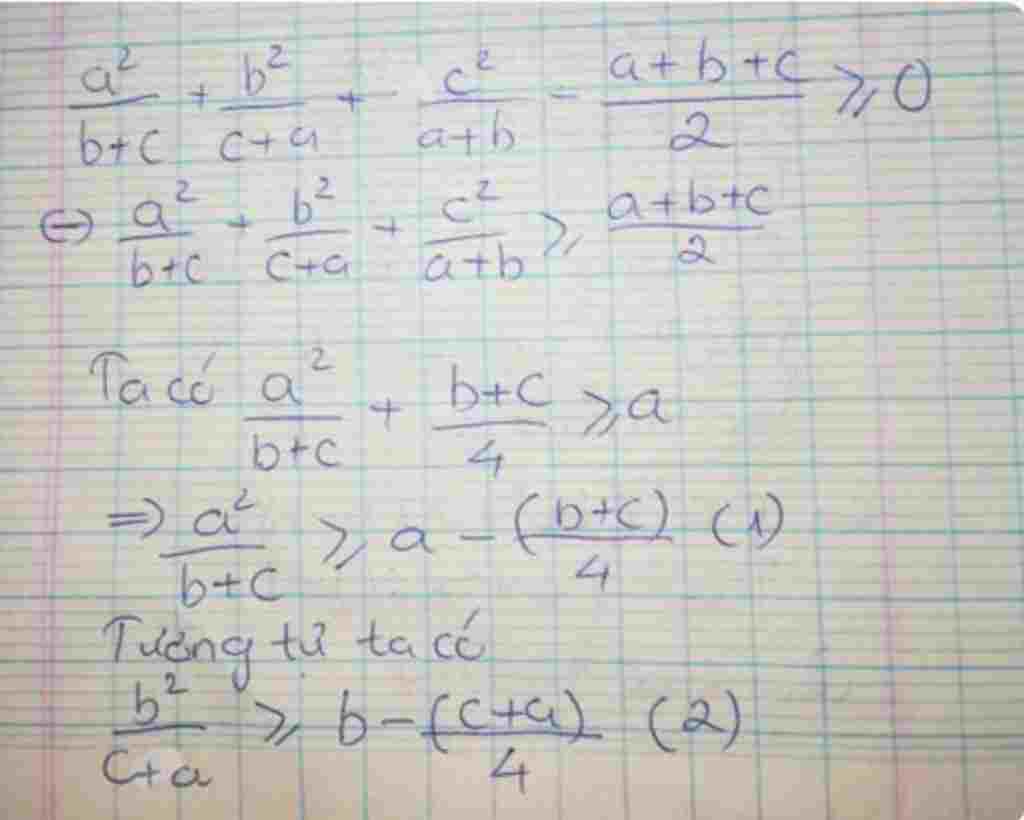 a²/(b+c) + b²/(c+a) + c²/(a+b) - (a+b+c)/2 ⩾ 0
⇔ a²/(b+c) + b²/(c+a) + c²/(a+b) ⩾ (a+b+c)/2
Ta có a²/(b+c) + (b+c)/4 ⩾ a
⇒ a²/(b+c) ⩾ a - (b+c)/4 (1)
Tương tự ta có
b²/(c+a) ⩾ b - (c+a)/4 (2)